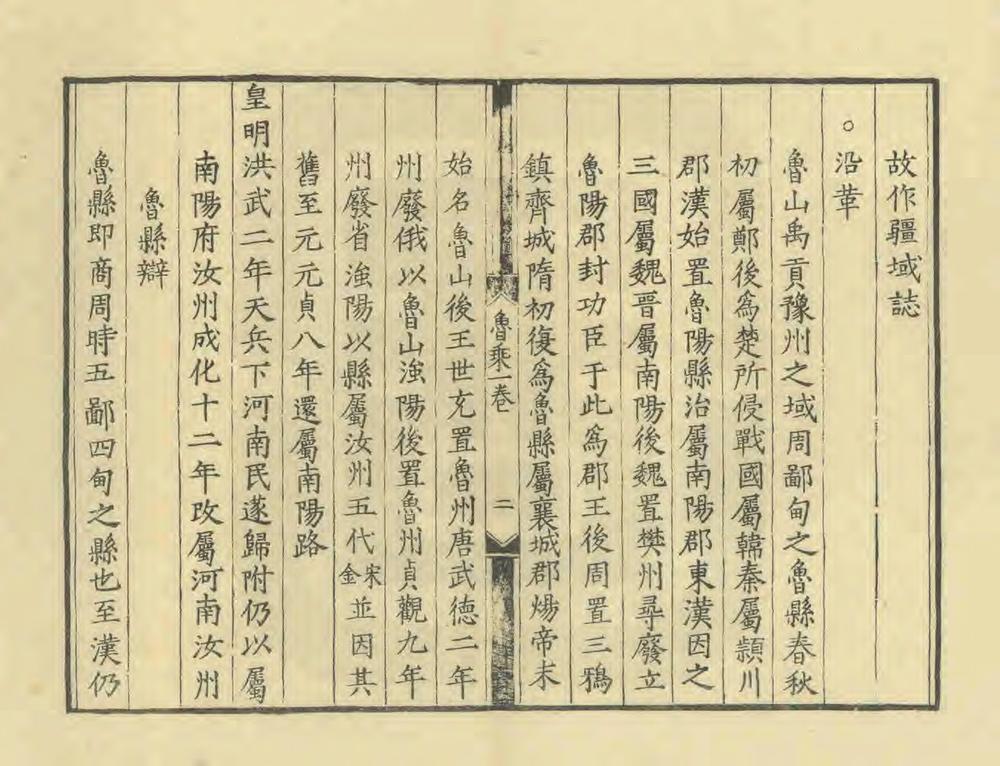 故作疆域誌
○沿革
魯山禹貢豫州之域周鄙甸之魯縣春秋
初屬鄭後為楚所侵戰國屬韓秦屬潁川
郡漢始置魯陽縣治屬南陽郡東漢因之
三國屬魏晉屬南陽後魏置樊州尋廢立
魯陽郡封功臣于此為郡王後周置三鴉
鎮齊城隋初復為魯縣屬襄城郡煬帝末
魯乘一卷
二
始名魯山後王世充置魯州唐武德二年
州廢俄以魯山滍陽後置魯州貞觀九年
州廢省滍陽以縣屬汝州五代宋金並因其
舊至元元貞八年還屬南陽路
皇明洪武二年天兵下河南民遂歸附仍以屬
南陽府汝州成化十二年改屬河南汝州
魯縣辯
魯縣即商周時五鄙四甸之縣也至漢仍